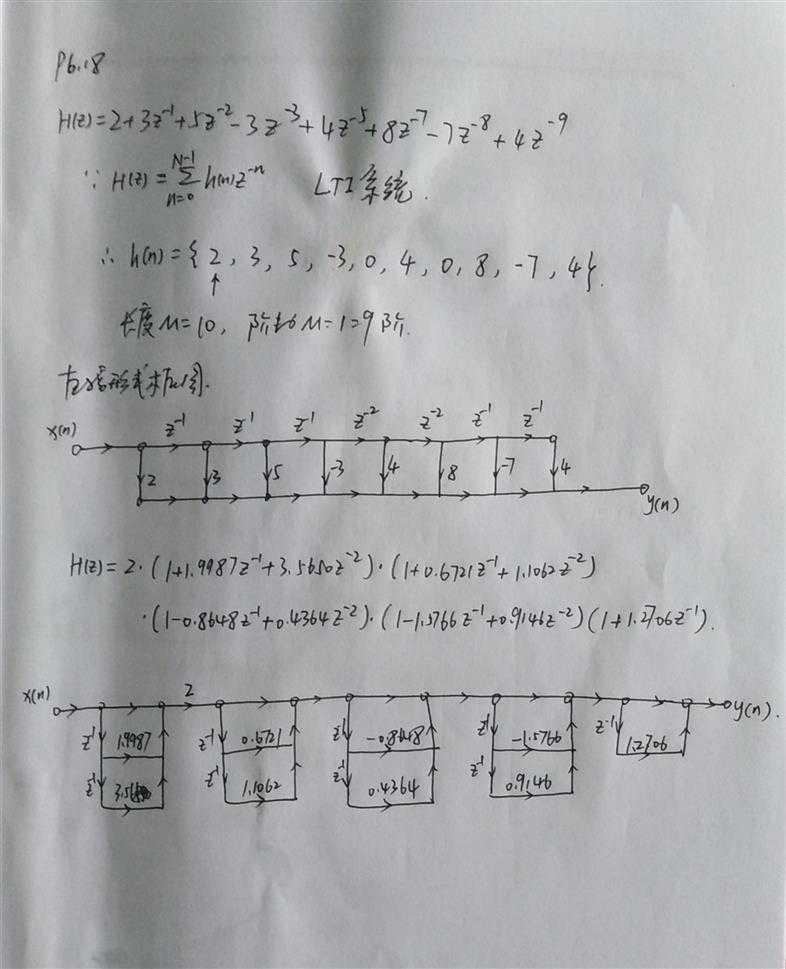 P6.18
H(z)=2+3z⁻¹+5z⁻²-3z⁻³+4z⁻⁵+8z⁻⁷-7z⁻⁸+4z⁻⁹
∵ H(z)=∑_{n=0}^{N-1} h(n)z⁻ⁿ LTI系统.
∴ h(n)={2, 3, 5, -3, 0, 4, 0, 8, -7, 4}.
↑
长度M=10, 阶为M-1=9阶.
形式框图.
x(n) z⁻¹ z⁻¹ z⁻¹ z⁻² z⁻² z⁻¹ z⁻¹
2 3 5 -3 4 8 -7 4
y(n)
H(z)=2·(1+1.9987z⁻¹+3.5650z⁻²)·(1+0.6721z⁻¹+1.1062z⁻²)
·(1-0.8648z⁻¹+0.4364z⁻²)·(1-1.5766z⁻¹+0.9146z⁻²)(1+1.2706z⁻¹).
x(n) 2 y(n).
z⁻¹ 1.9987 z⁻¹ 0.6721 z⁻¹ -0.8648 z⁻¹ -1.5766 z⁻¹ 1.2706
z⁻¹ z⁻¹ 1.1062 z⁻¹ 0.4364 z⁻¹ 0.9146